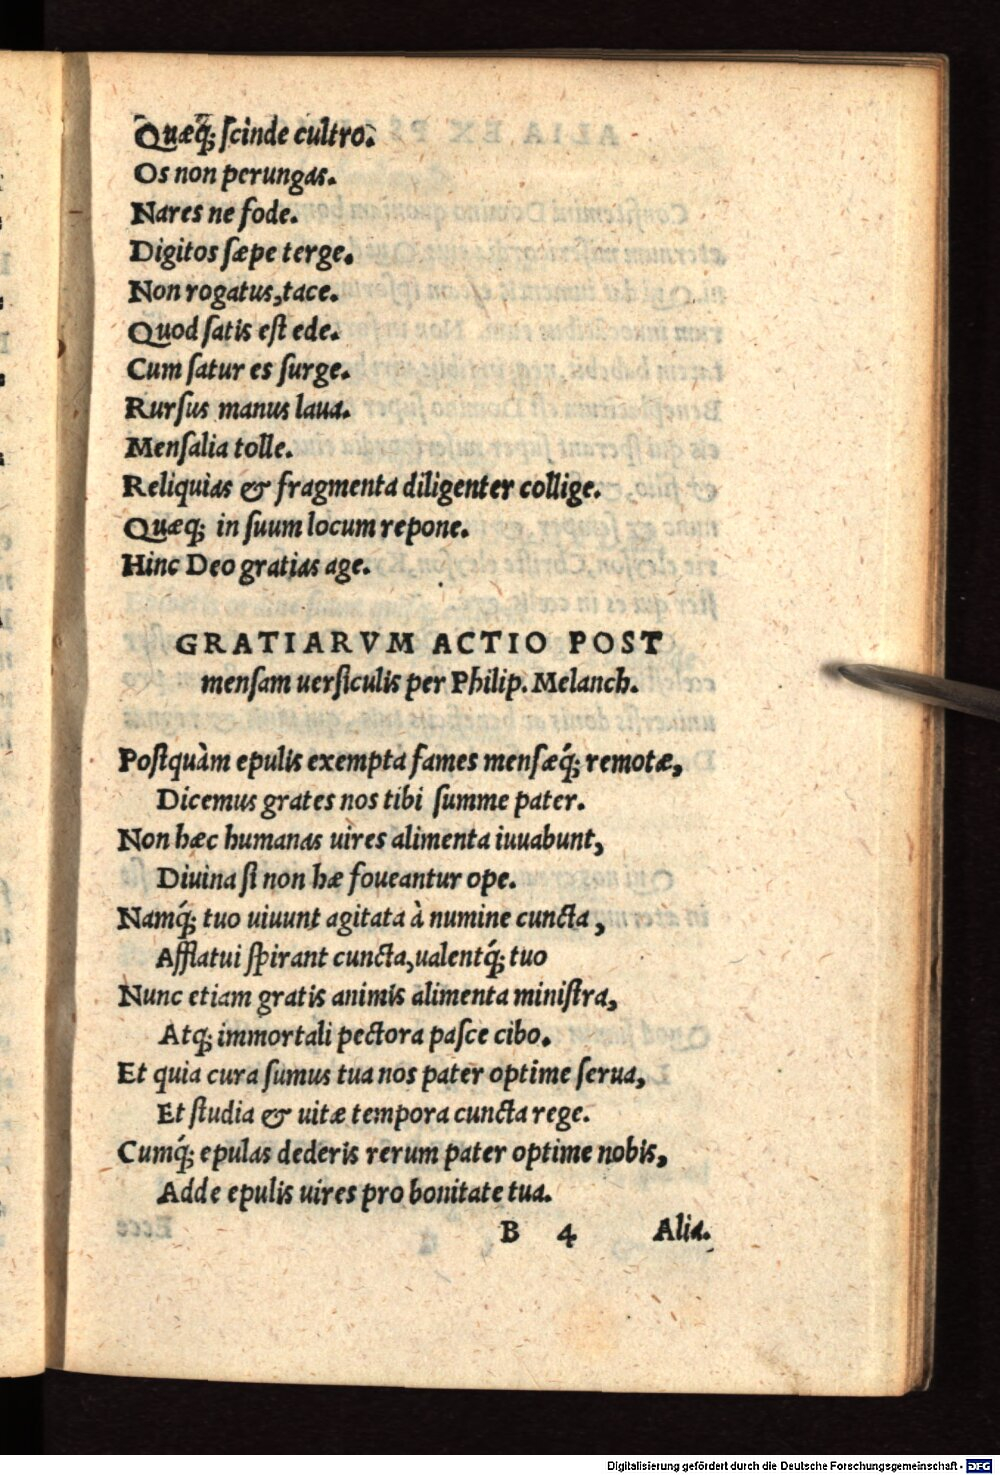 Quæq; scinde cultro.
Os non perungas.
Nares ne fode.
Digitos sæpe terge.
Non rogatus, tace.
Quod satis est ede.
Cum satur es surge.
Rursus manus laua.
Mensalia tolle.
Reliquias & fragmenta diligenter collige.
Quæq; in suum locum repone.
Hinc Deo gratias age.
GRATIARVM ACTIO POST
mensam uersiculis per Philip. Melanch.
Postquàm epulis exempta fames mensæq́; remotæ,
Dicemus grates nos tibi summe pater.
Non hæc humanas uires alimenta iuuabunt,
Diuina si non hæ foueantur ope.
Namq́; tuo uiuunt agitata à numine cuncta,
Afflatui spirant cuncta, ualentq́; tuo
Nunc etiam gratis animis alimenta ministra,
Atq; immortali pectora pasce cibo.
Et quia cura sumus tua nos pater optime serua,
Et studia & uitæ tempora cuncta rege.
Cumq́; epulas dederis rerum pater optime nobis,
Adde epulis uires pro bonitate tua.
B 4 Alia.
Digitalisierung gefördert durch die Deutsche Forschungsgemeinschaft - DFG